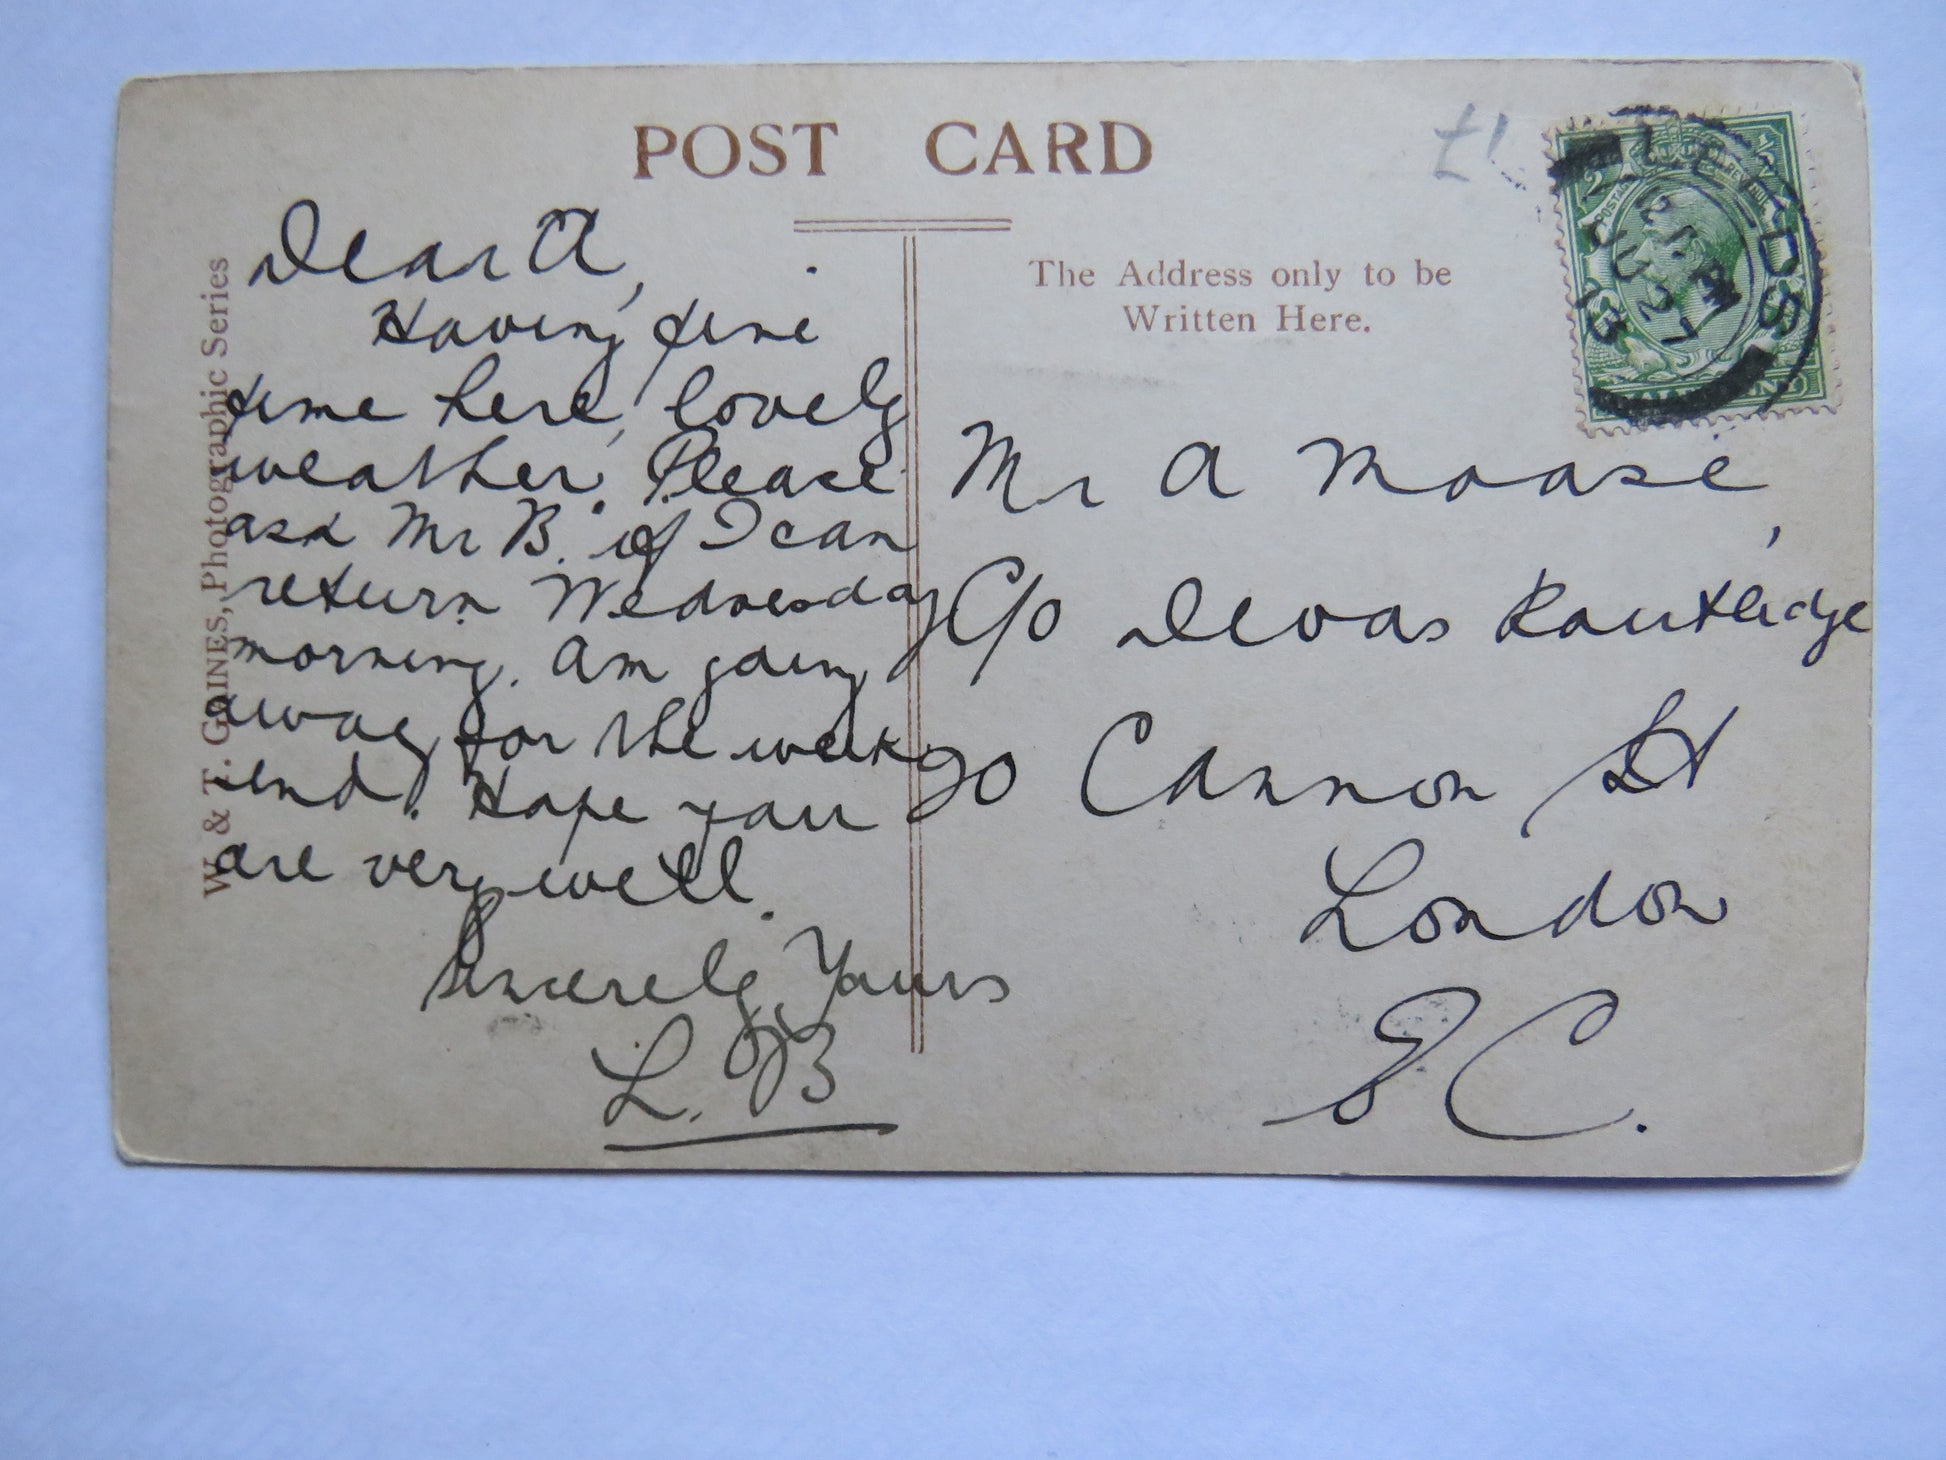 POST CARD
£1
W. & T. GAINES, Photographic Series
Dear A,
Having fine
time here, lovely
weather. Please
ask Mr B. if I can
return Wednesday
morning. Am going
away for the week
end. Hope you
are very well.
Sincerely Yours
L. B
The Address only to be
Written Here.
LEEDS
JU 27
13
Mr A Moase,
C/o Devas Routledge
20 Cannon St
London
E C.